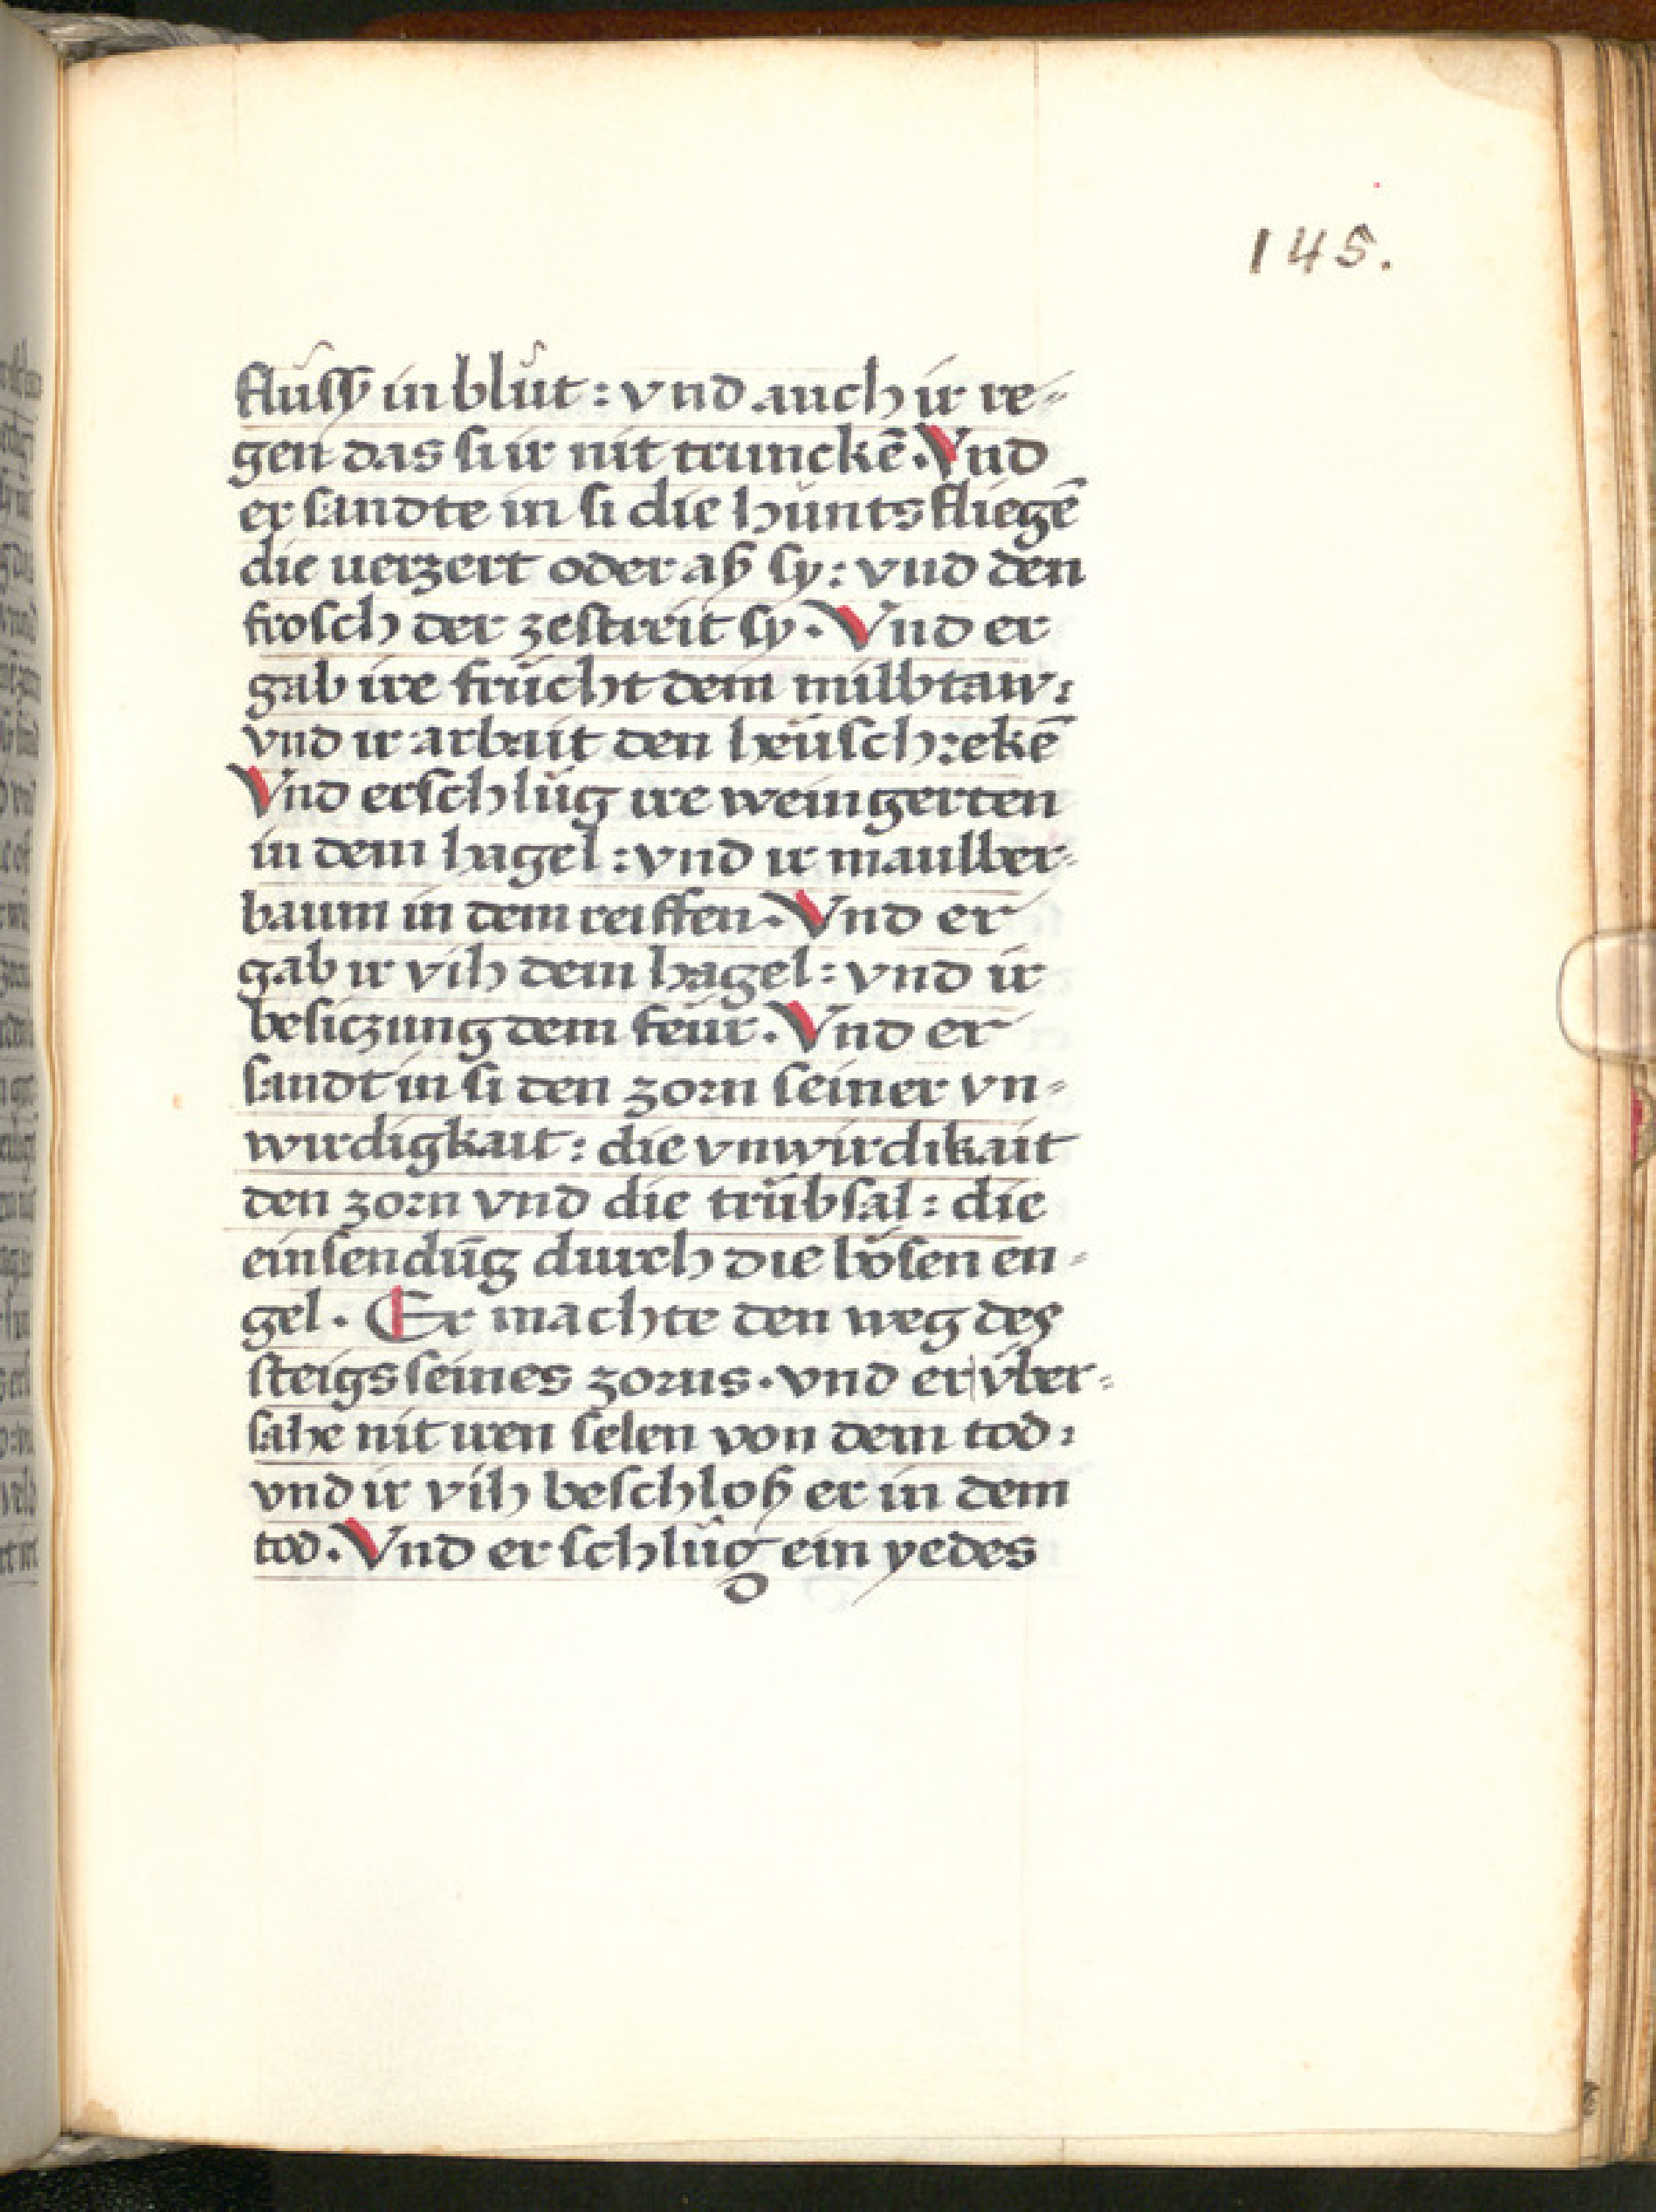 145.
flüſſ in blůt : vnd auch ir re-
gen das ſi ir nit trunckē . Vnd
er ſandte in ſi die huntsfliegē
die uerzert oder aß ſy : vnd den
froſch der zeſtreit ſy . Vnd er
gab ire frücht dem milbtaw :
vnd ir arbait den heüſchrekē
Vnd erſchlůg ire weingerten
in dem hagel : vnd ir maulber-
baum in dem reiffen . Vnd er
gab ir vih dem hagel : vnd ir
beſiczung dem feür . Vnd er
ſandt in ſi den zorn ſeiner vn-
wirdigkait : die vnwirdikait
den zorn vnd die trübſal : die
einſendūg durch die böſen en-
gel . Er machte den weg des
ſteigs ſeines zorns . vnd er über-
ſahe nit iren ſelen von dem tod :
vnd ir vih beſchloß er in dem
tod . Vnd er ſchlůg ein yedes